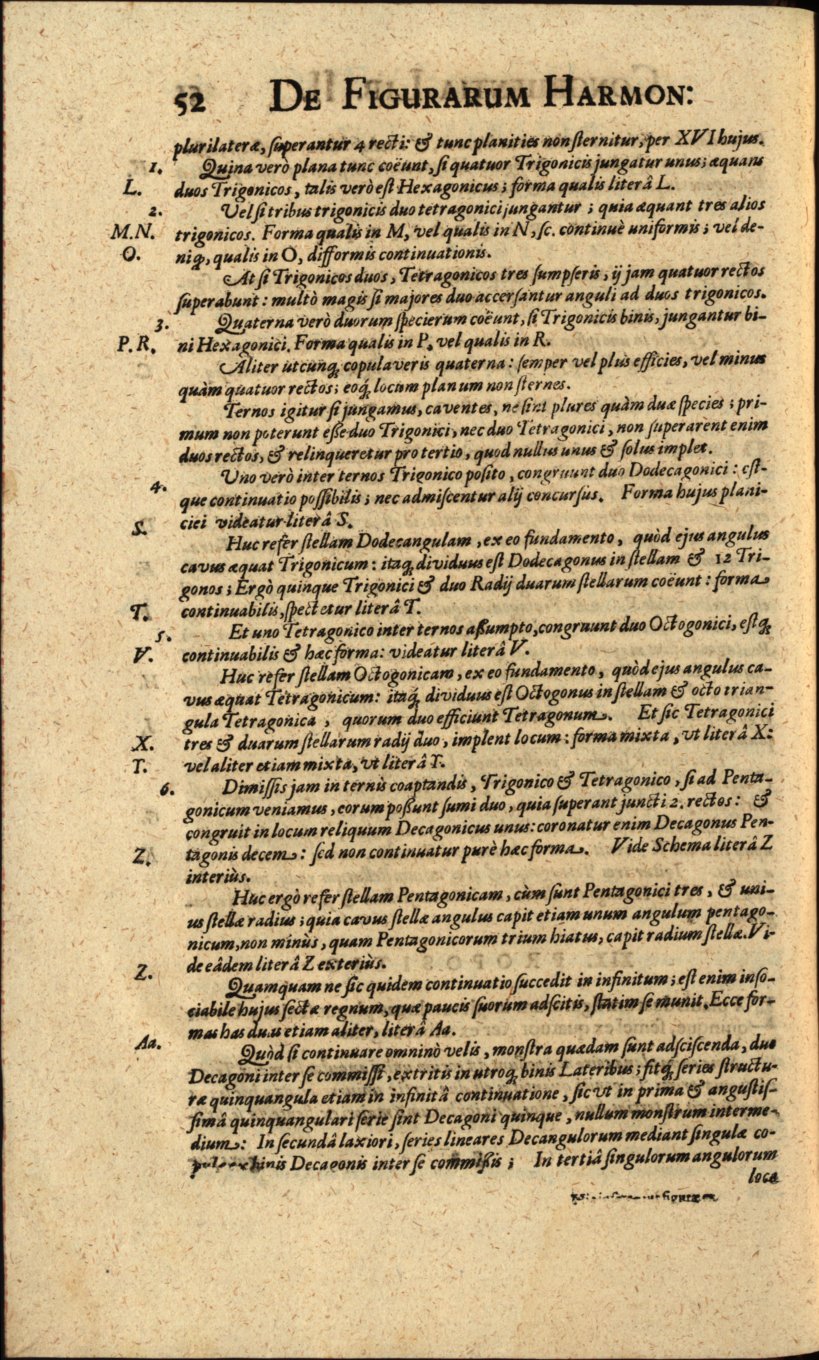 52 DE FIGURARUM HARMON:
plurilateræ, superantur 4 recti: & tunc planities non sternitur, per XVI hujus.
1. Quina verò plana tunc coëunt, si quatuor Trigonicis jungatur unus; æquans
L. duos Trigonicos, talis verò est Hexagonicus; forma qualis literâ L.
2. Vel si tribus trigonicis duo tetragonici jungantur; quia æquant tres alios
M.N. trigonicos. Forma qualis in M, vel qualis in N, sc. continuè uniformis; vel de-
O. niq́, qualis in O, difformis continuationis.
At si Trigonicos duos, Tetragonicos tres sumpseris, ij jam quatuor rectos
superabunt: multò magis si majores duo accersantur anguli ad duos trigonicos.
3. Quaterna verò duorum specierum coëunt, si Trigonicis binis, jungantur bi-
P.R. ni Hexagonici. Forma qualis in P, vel qualis in R.
Aliter utcunq, copulaveris quaterna: semper vel plus efficies, vel minus
quàm quatuor rectos; eoq́, locum planum non sternes.
Ternos igitur si jungamus, caventes, ne sint plures quàm duæ species; pri-
mum non poterunt esse duo Trigonici, nec duo Tetragonici, non superarent enim
duos rectos, & relinqueretur pro tertio, quod nullus unus & solus implet.
Uno verò inter ternos Trigonico posito, congruunt duo Dodecagonici: est-
4. que continuatio possibilis; nec admiscentur alij concursus. Forma hujus plani-
S. ciei videatur literâ S.
Huc refer stellam Dodecangulam, ex eo fundamento, quòd ejus angulus
cavus æquat Trigonicum: itaq, dividuus est Dodecagonus in stellam & 12 Tri-
gonos; Ergò quinque Trigonici & duo Radij duarum stellarum coëunt: forma
T. continuabilis, spectetur literâ T.
5. Et uno Tetragonico inter ternos assumpto, congruunt duo Octogonici, estq́
V. continuabilis & hæc forma: videatur literâ V.
Huc refer stellam Octogonicam, ex eo fundamento, quòd ejus angulus ca-
vus æquat Tetragonicum: itaq́, dividuus est Octogonus in stellam & octo trian-
gula Tetragonica, quorum duo efficiunt Tetragonum. Et sic Tetragonici
X. tres & duarum stellarum radij duo, implent locum: forma mixta, vt literâ X:
T. vel aliter etiam mixta, vt literâ T.
6. Dimissis jam in ternis coaptandis, Trigonico & Tetragonico, si ad Penta-
gonicum veniamus, eorum possunt sumi duo, quia superant juncti 2. rectos: &
congruit in locum reliquum Decagonicus unus: coronatur enim Decagonus Pen-
Z. tagonis decem: sed non continuatur purè hæc forma. Vide Schema literâ Z
interiùs.
Huc ergò refer stellam Pentagonicam, cùm sunt Pentagonici tres, & uni-
us stellæ radius; quia cavus stellæ angulus capit etiam unum angulum pentago-
nicum, non minùs, quam Pentagonicorum trium hiatus, capit radium stellæ. Vi-
Z. de eâdem literâ Z exteriùs.
Quamquam ne sic quidem continuatio succedit in infinitum; est enim inso-
ciabile hujus sectæ regnum, quæ paucis suorùm adscitis, statim se munit. Ecce for-
Aa. mas has duas etiam aliter, literâ Aa.
Quòd si continuare omninò velis, monstra quædam sunt adsciscenda, duo
Decagoni inter se commissi, extritis in utroq, binis Lateribus; sitq́, series structu-
ræ quinquangula etiam in infinitâ continuatione, sic vt in prima & angustis-
simâ quinquangulari serie sint Decagoni quinque, nullum monstrum interme-
dium: In secundâ laxiori, series lineares Decangulorum mediant singulæ co-
binis Decagonis inter se commissis; In tertiâ singulorum angulorum
loco